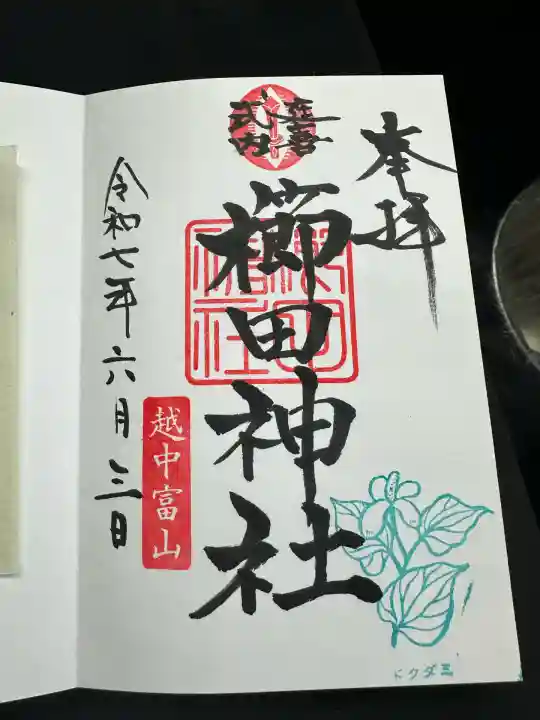 奉拝
延喜
式内
櫛田神社
櫛田
神社
越中富山
令和七年六月三日
ドクダミ